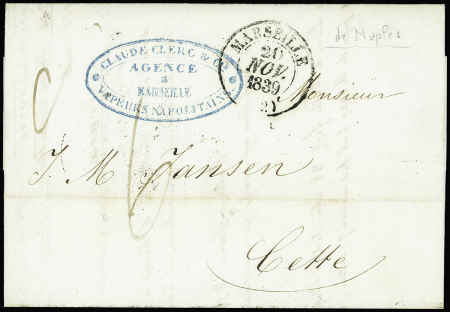 de Naples
CLAUDE CLERC & Cie
AGENCE
A
MARSEILLE
VAPEURS NAPOLITAINS
MARSEILLE
20
NOV.
1839
Monsieur
J. M. Jansen
Cette